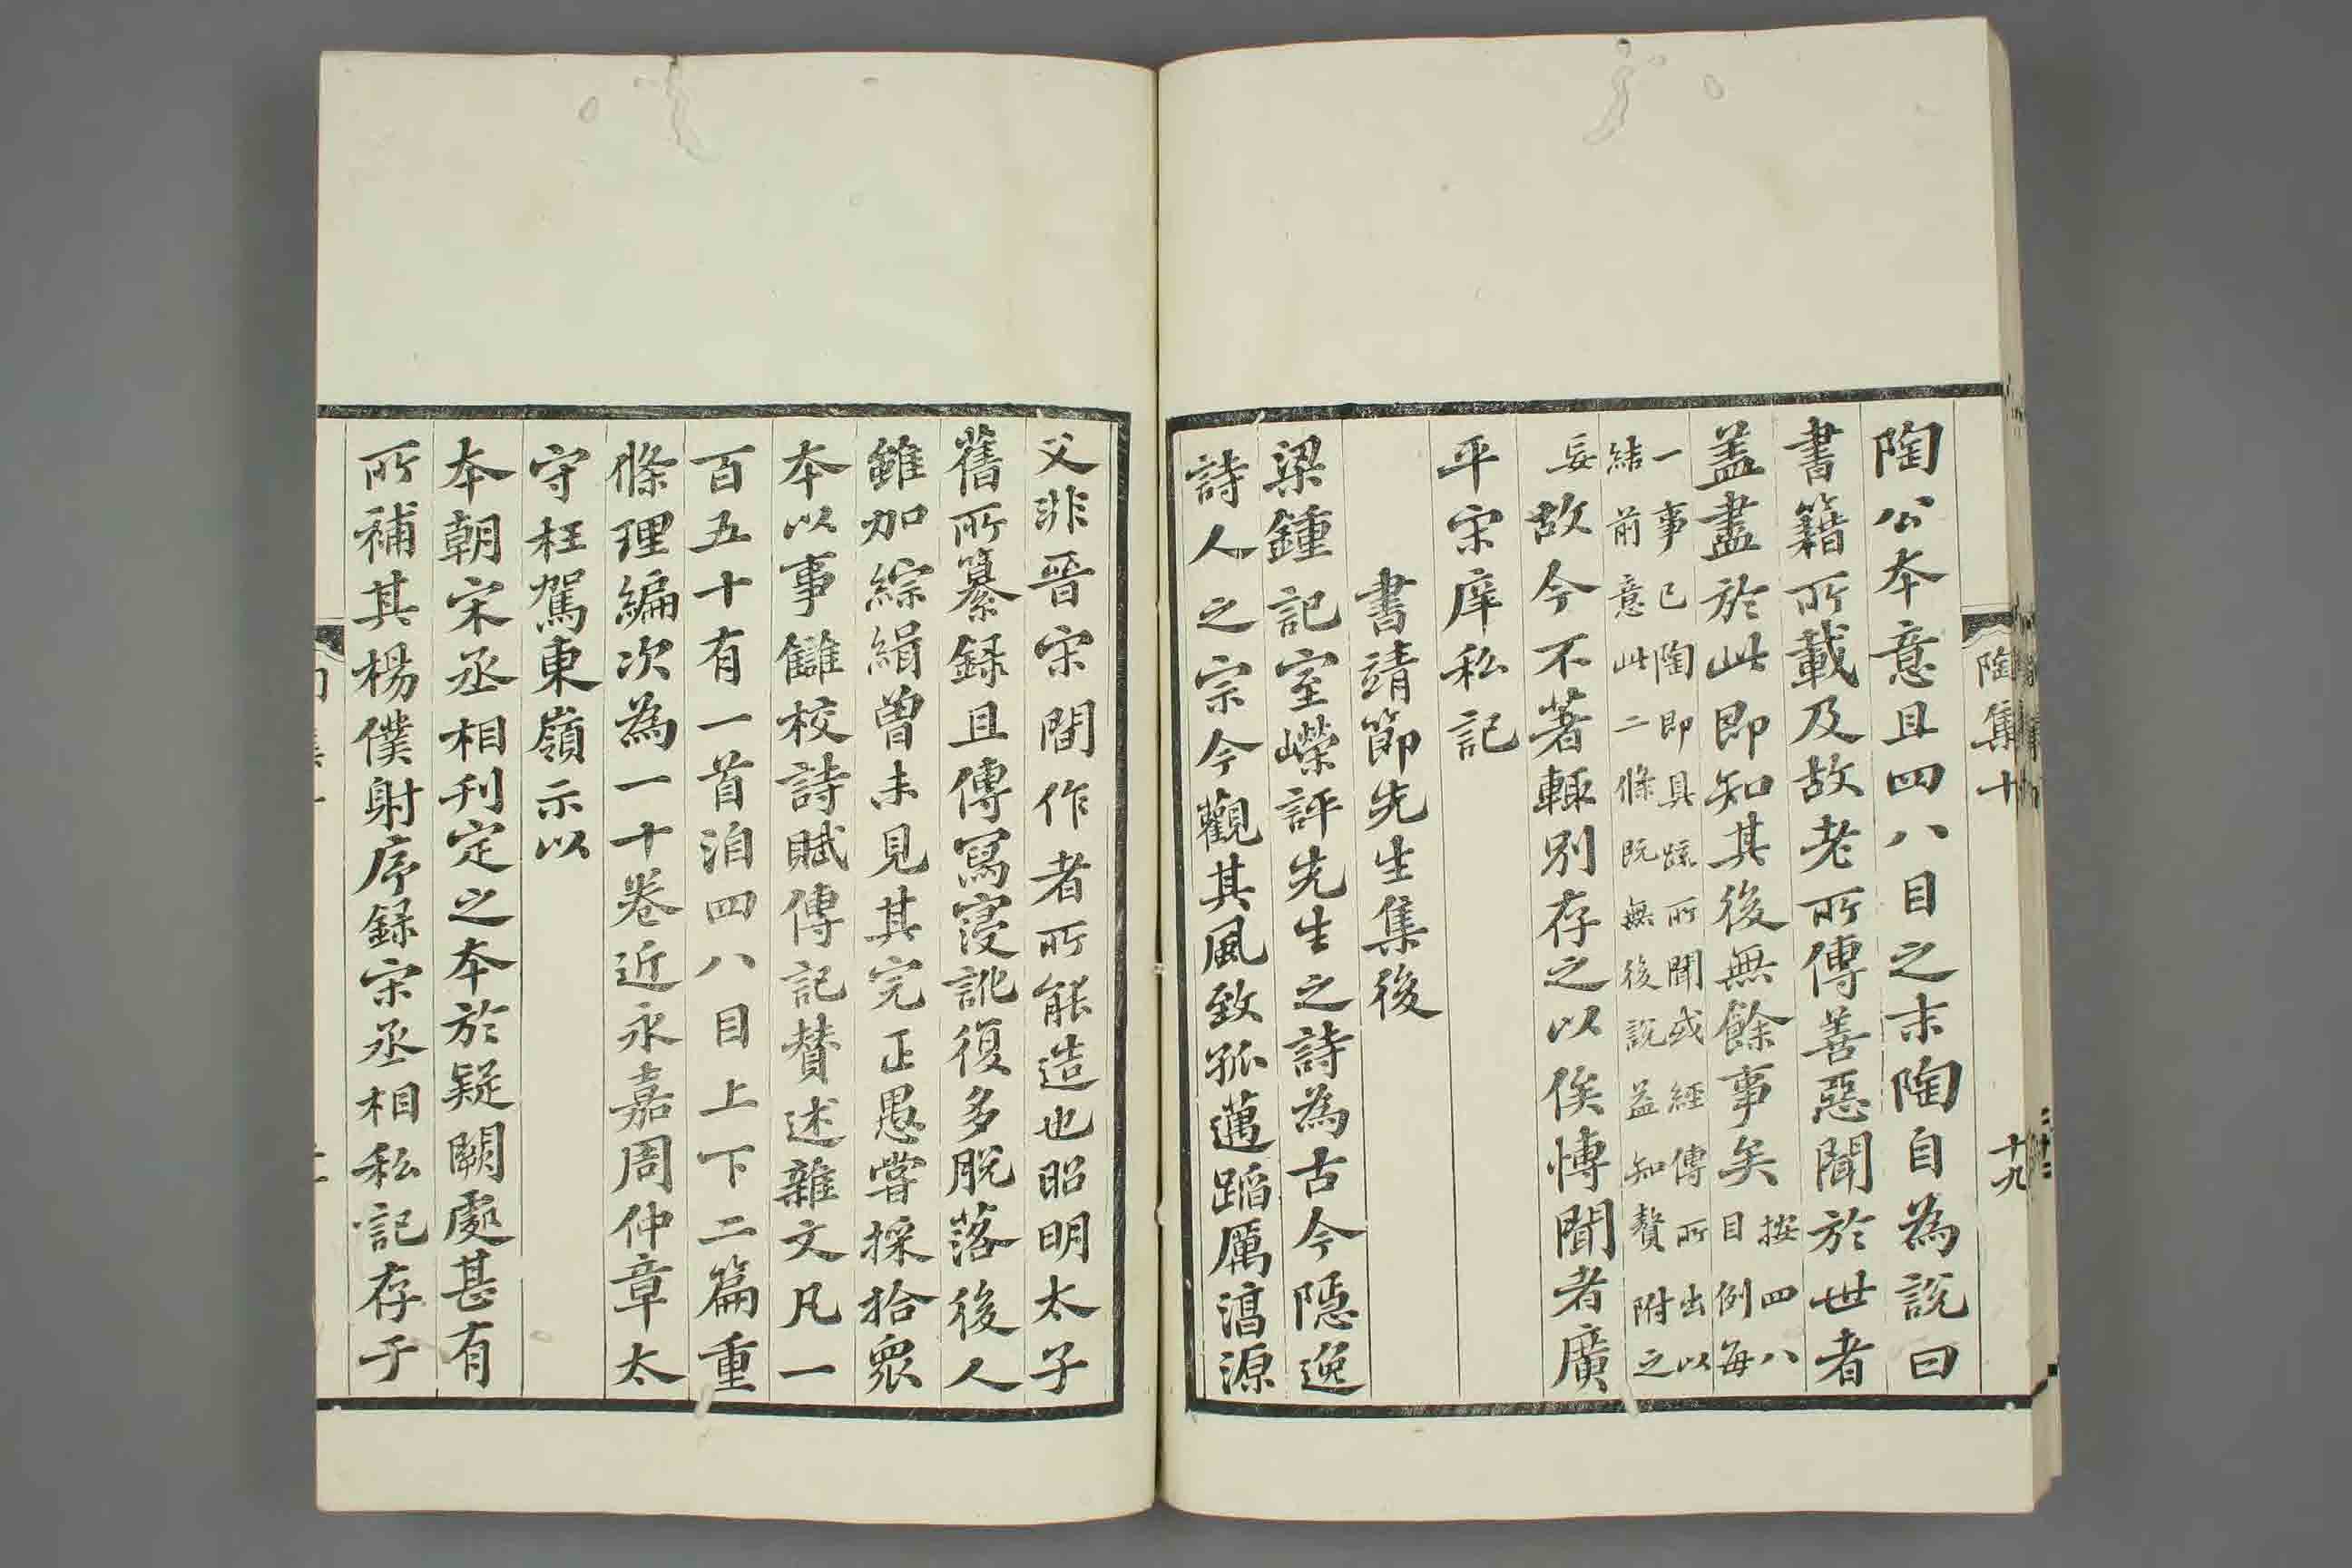 陶集十
十九
陶公本意且四八目之末陶自為説曰
書籍所載及故老所傳善惡聞於世者
盖盡於此即知其後無餘事矣按四八
目例每
一事已陶即具疏所聞或經傳所出以
結前意此二條既無後説益知贅附之
妄故今不著輒别存之以俟慱聞者廣
平宋庠私記
書靖節先生集後
梁鍾記室嶸評先生之詩為古今隱逸
詩人之宗今觀其風致孤邁蹈厲淈源
父非晋宋間作者所能造也昭明太子
舊所纂録且傳寫寖訛復多脱落後人
雖加綜緝曾未見其完正愚嘗採拾衆
本以事讎校詩賦傳記賛述雜文凡一
百五十有一首洎四八目上下二篇重
條理編次為一十卷近永嘉周仲章太
守枉駕東嶺示以
本朝宋丞相刊定之本於疑闕處甚有
所補其楊僕射序録宋丞相私記存于